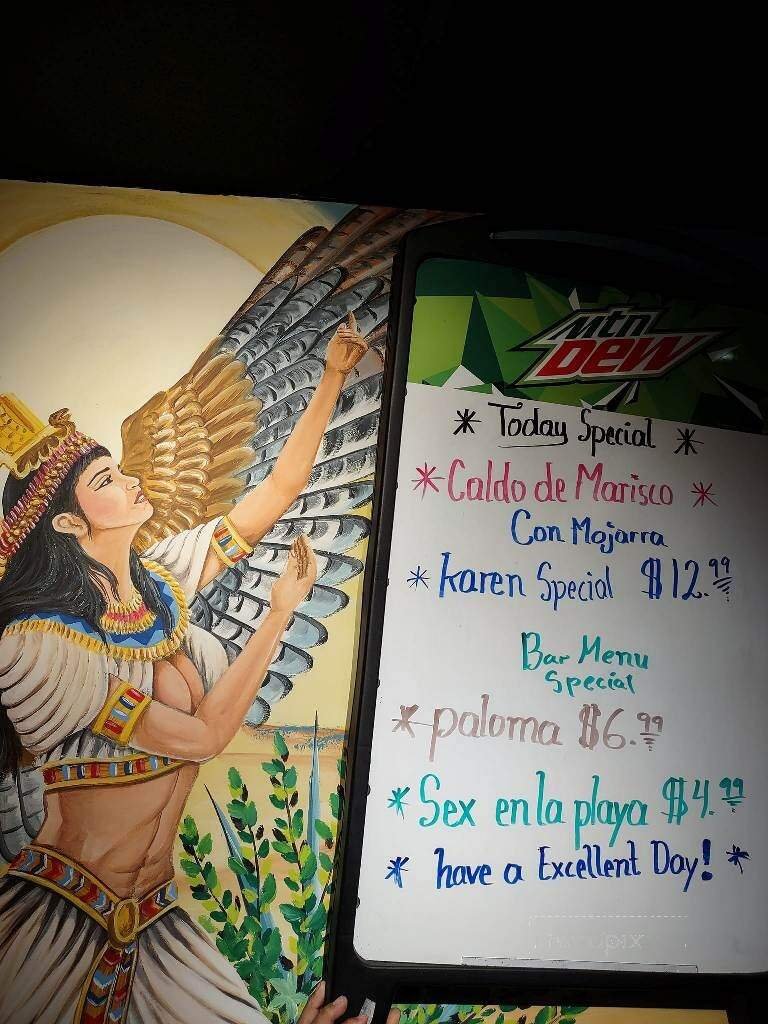 mtn
DEW
* Today Special *
* Caldo de Marisco *
Con Mojarra
* karen Special $12.99
Bar Menu
Special
* paloma $6.99
* Sex en la playa $4.99
* have a Excellent Day! *